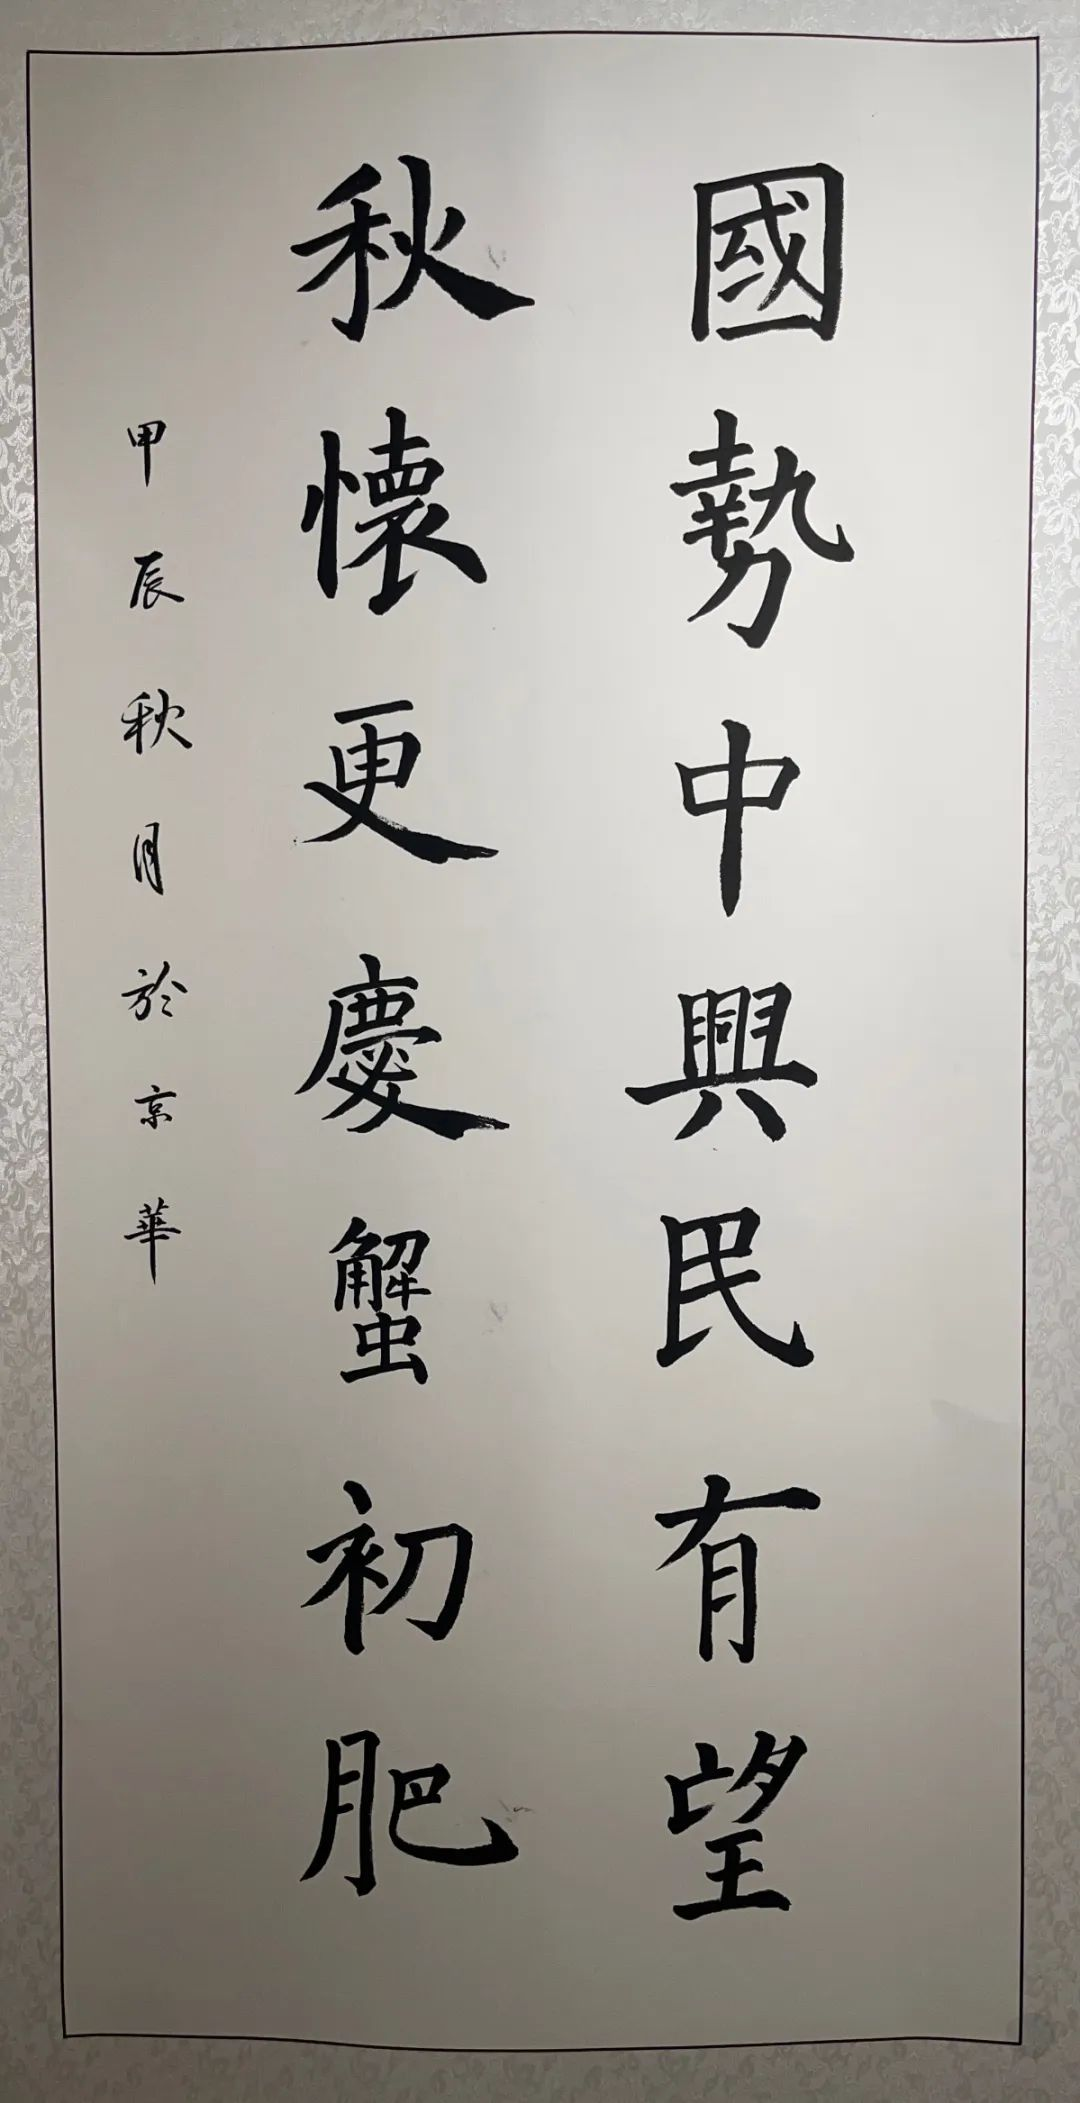 國勢中興民有望
秋懷更慶蟹初肥
甲辰秋月於京華